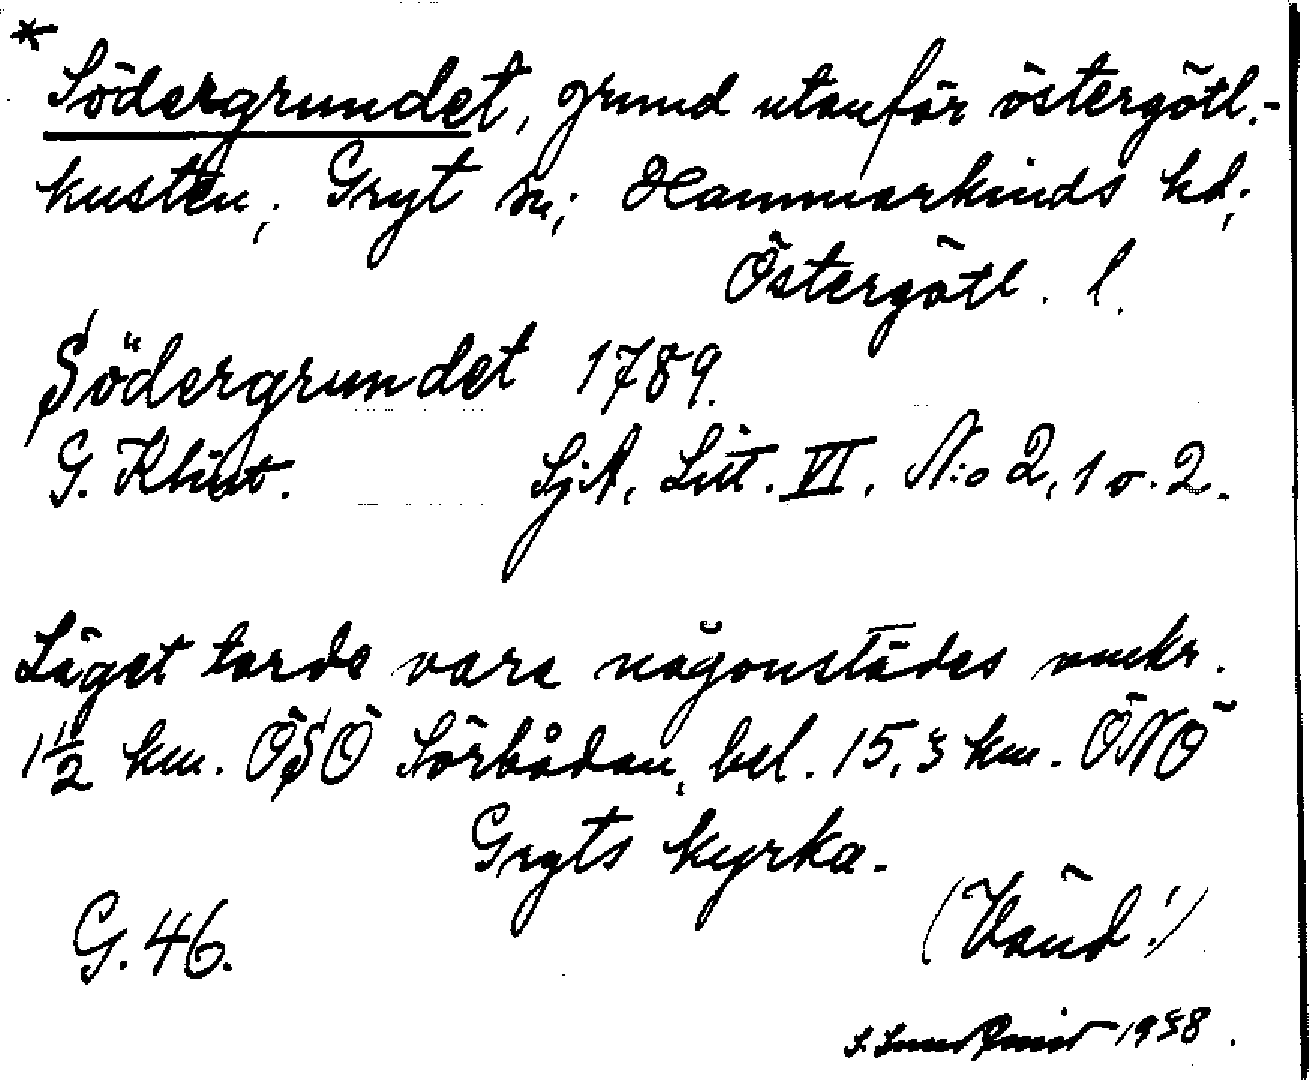 * Södergrundet, grund utanför östergötl.-
kusten, Gryt sn, Hammarkinds hd,
Östergötl. l.
Södergrundet 1789.
G. Klint. SjA, Litt. VI, N:o 2, 1 o. 2.
Läget torde vara någonstädes omkr.
1 1/2 km. ÖSÖ Sörbådan, bel. 15,3 km. ÖNÖ
Gryts kyrka.
G. 46. (Vänd!)
1938.